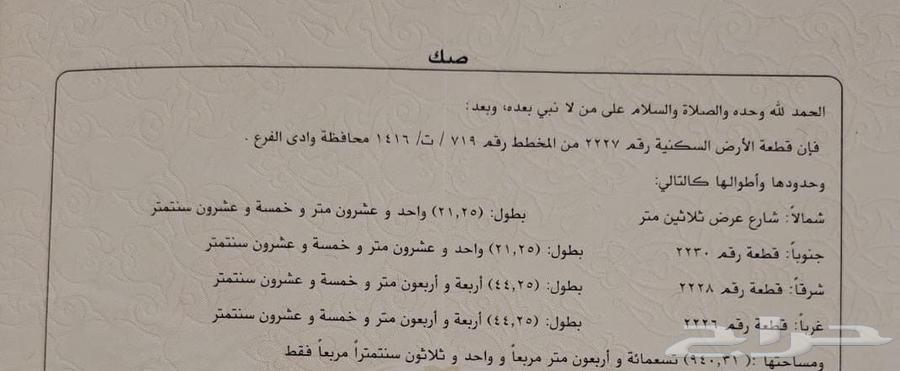 صك
الحمد لله وحده والصلاة والسلام على من لا نبي بعده، وبعد:
فإن قطعة الأرض السكنية رقم ٢٢٢٧ من المخطط رقم ٧١٩ / ت/ ١٤١٦ محافظة وادى الفرع .
وحدودها وأطوالها كالتالي:
شمالاً: شارع عرض ثلاثين متر بطول: (٢١,٢٥) واحد و عشرون متر و خمسة و عشرون سنتمتر
جنوباً: قطعة رقم ٢٢٣٠ بطول: (٢١,٢٥) واحد و عشرون متر و خمسة و عشرون سنتمتر
شرقاً: قطعة رقم ٢٢٢٨ بطول: (٤٤,٢٥) أربعة و أربعون متر و خمسة و عشرون سنتمتر
غرباً: قطعة رقم ٢٢٢٦ بطول: (٤٤,٢٥) أربعة و أربعون متر و خمسة و عشرون سنتمتر
ومساحتها :( ٩٤٠,٣١) تسعمائة و أربعون متر مربعاً و واحد و ثلاثون سنتمتراً مربعاً فقط
حراج